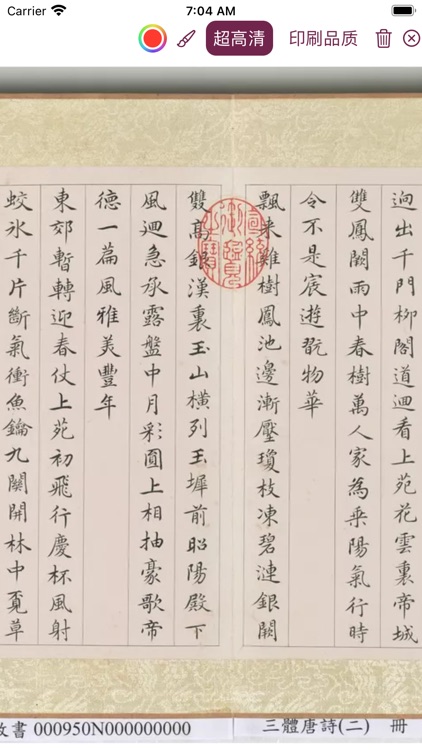 Carrier 7:04 AM
超高清 印刷品质
逈出千門柳閣道迴看上苑花雲裏帝城
雙鳳闕雨中春樹萬人家為乗陽氣行時
令不是宸遊翫物華
飄来雞樹鳳池邊漸壓瓊枝凍碧漣銀闕
雙高銀漢裏玉山橫列玉墀前昭陽殿下
風迴急承露盤中月彩圓上相抽豪歌帝
德一篇風雅美豐年
東郊暫轉迎春仗上苑初飛行慶杯風射
蛟氷千片斷氣衝魚鑰九關開林中覓草
書 000950N000000000
三體唐詩(二) 冊